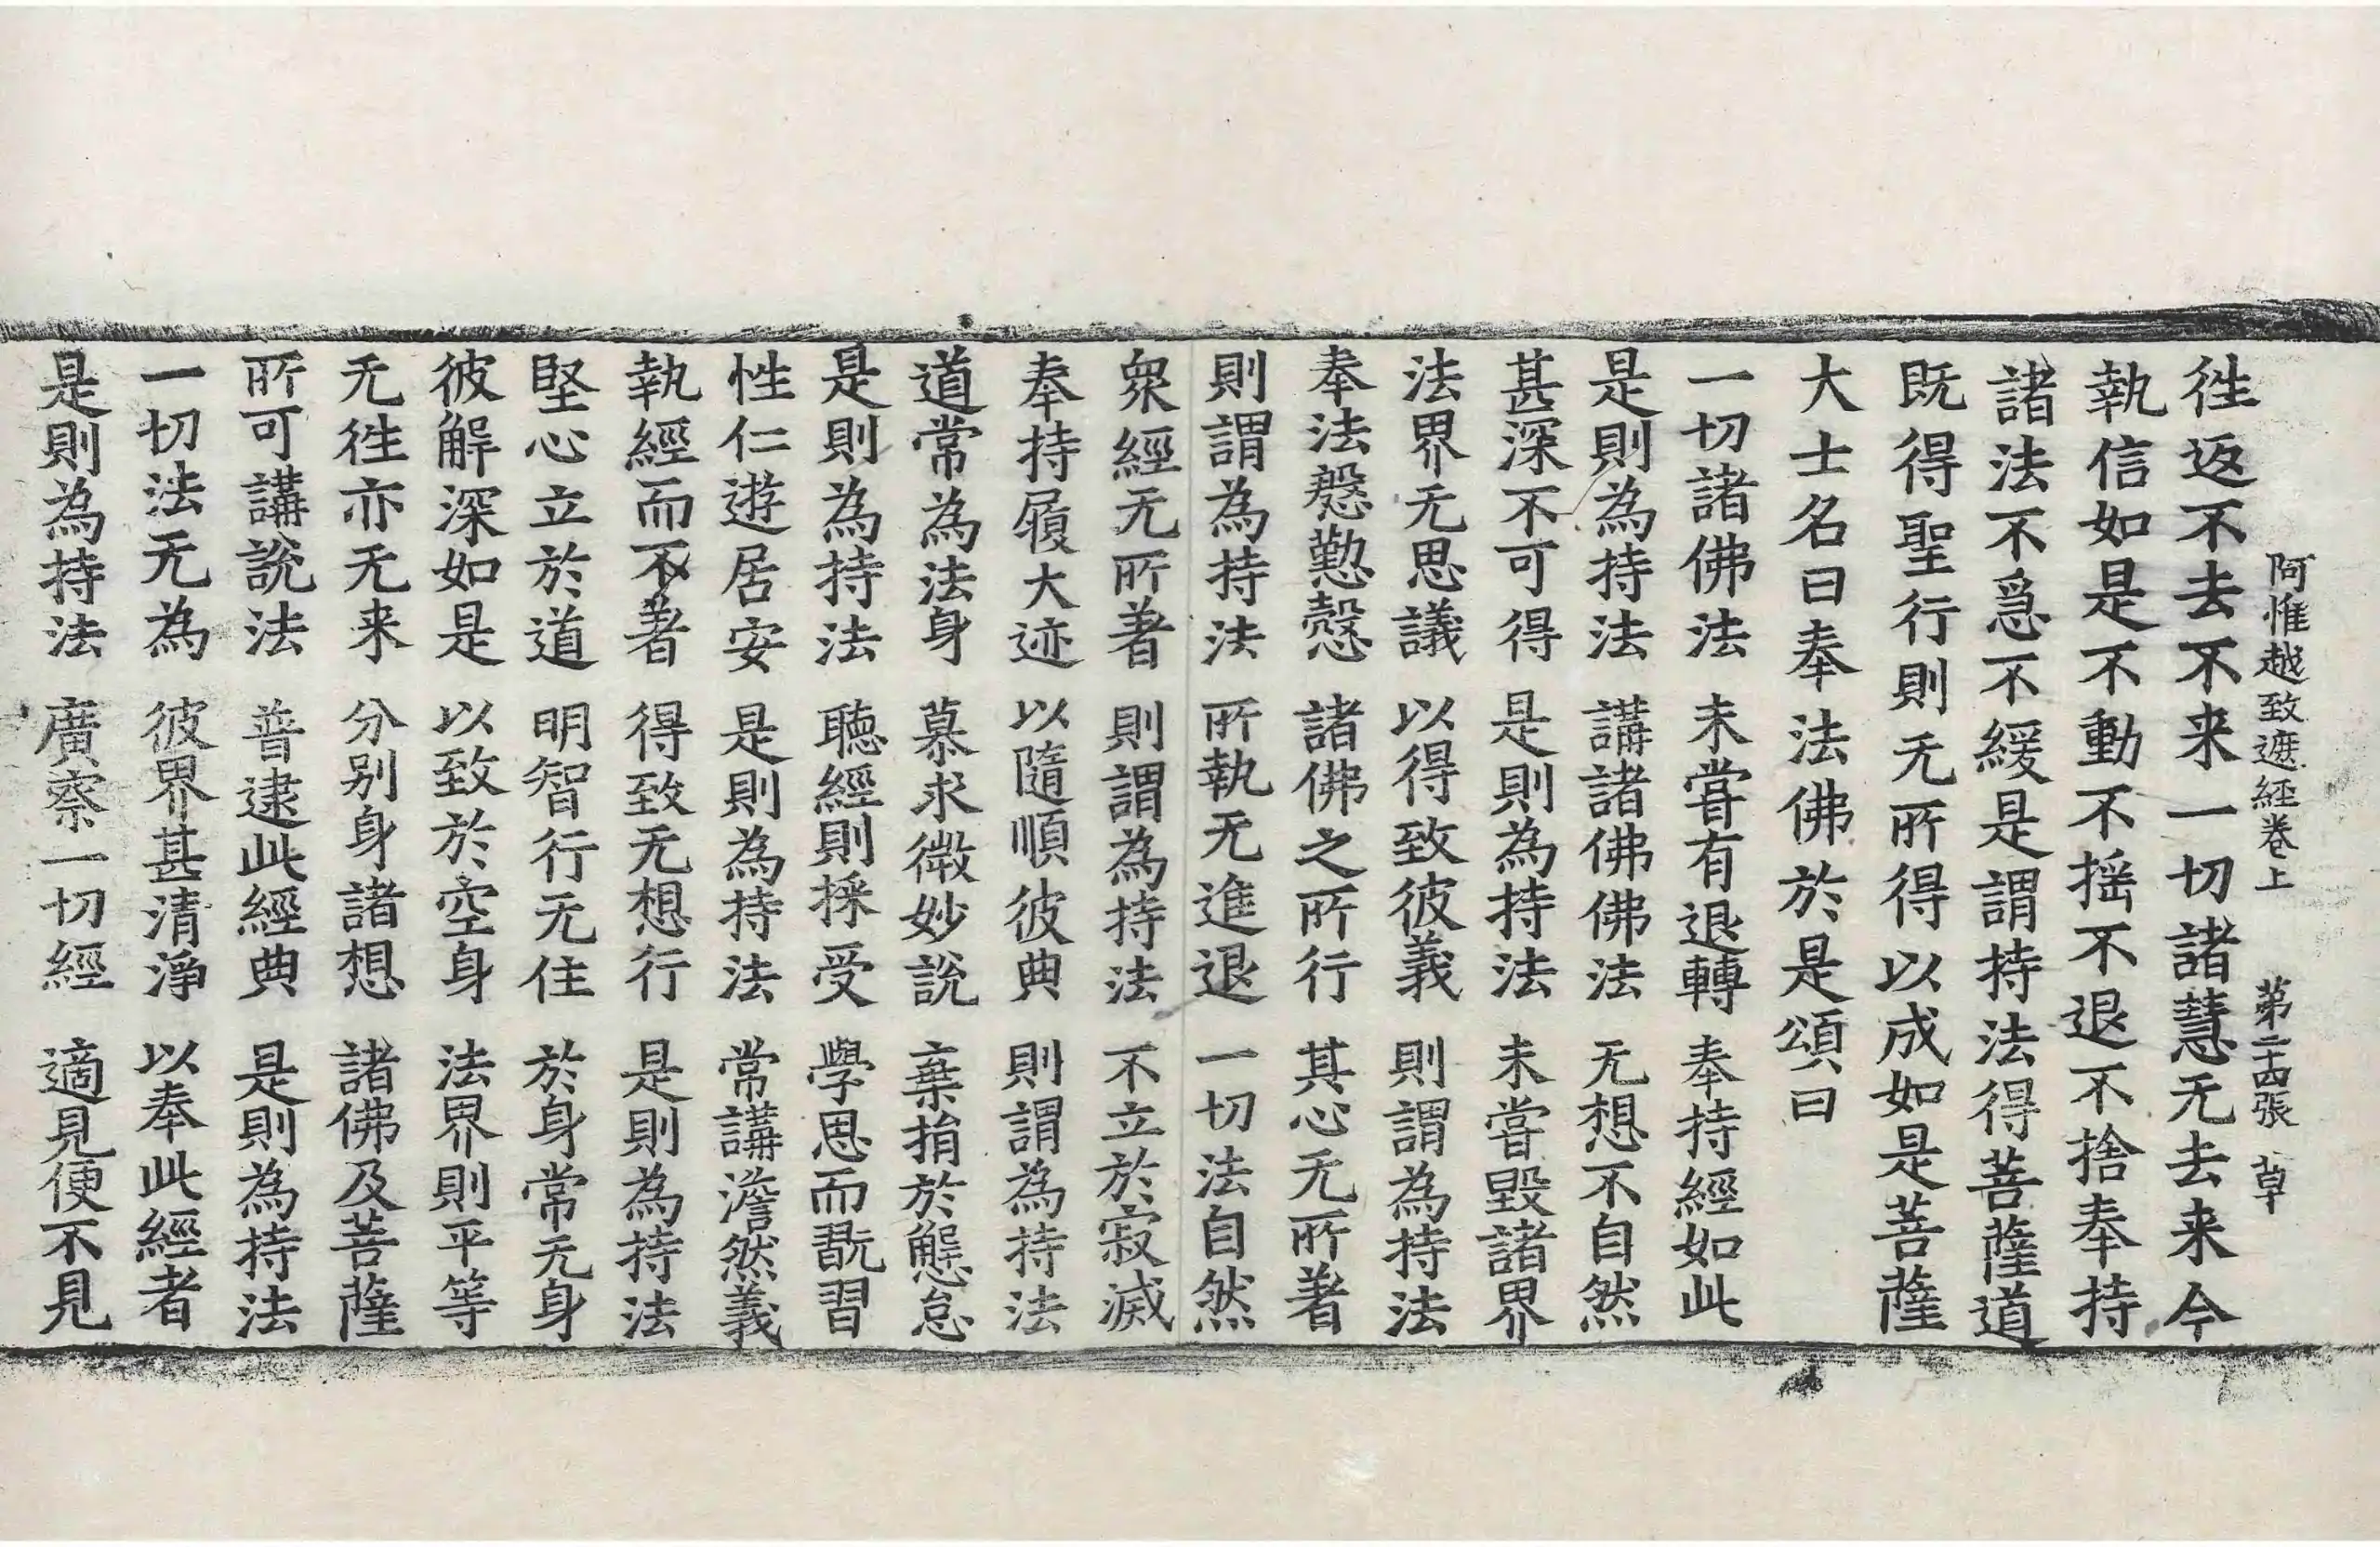 阿惟越致遮經卷上　第二十四張　草
徃返不去不来一切諸慧无去来今
執信如是不動不揺不退不捨奉持
諸法不急不緩是謂持法得菩薩道
既得聖行則无所得以成如是菩薩
大士名曰奉法佛於是頌曰
一切諸佛法　未甞有退轉　奉持經如此
是則為持法　講諸佛佛法　无想不自然
甚深不可得　是則為持法　未甞毀諸界
法界无思議　以得致彼義　則謂為持法
奉法慇懃慤　諸佛之所行　其心无所著
則謂為持法　所執无進退　一切法自然
衆經无所著　則謂為持法　不立於寂滅
奉持履大迹　以隨順彼典　則謂為持法
道常為法身　慕求微妙說　棄捐於懈怠
是則為持法　聽經則採受　學恩而翫習
性仁遊居安　是則為持法　常講澹然義
執經而不著　得致无想行　是則為持法
堅心立於道　明智行无住　於身常无身
彼解深如是　以致於空身　法界則平等
无徃亦无来　分别身諸想　諸佛及菩薩
所可講說法　普逮此經典　是則為持法
一切法无為　彼界甚清淨　以奉此經者
是則為持法　廣察一切經　適見便不見